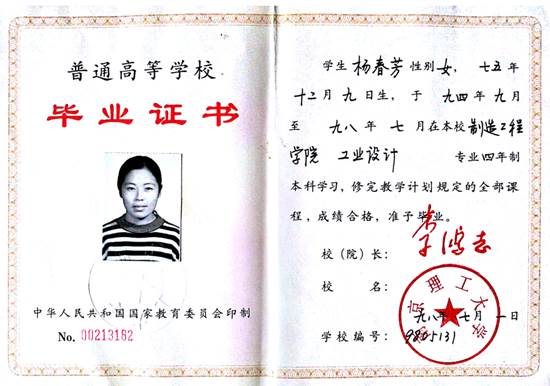 普通高等学校
毕业证书
中华人民共和国国家教育委员会印制
No. 00213162
学生 杨春芳 性别 女, 七五年
十二月九日生, 于 九四年九月
至 九八年 七月在本校 制造工程
学院 工业设计 专业四年制
本科学习, 修完教学计划规定的全部课
程, 成绩合格, 准予毕业。
校(院)长: 李鸿志
校 名:
京理工大学
九八年 七月 一日
学校编号: 9805131